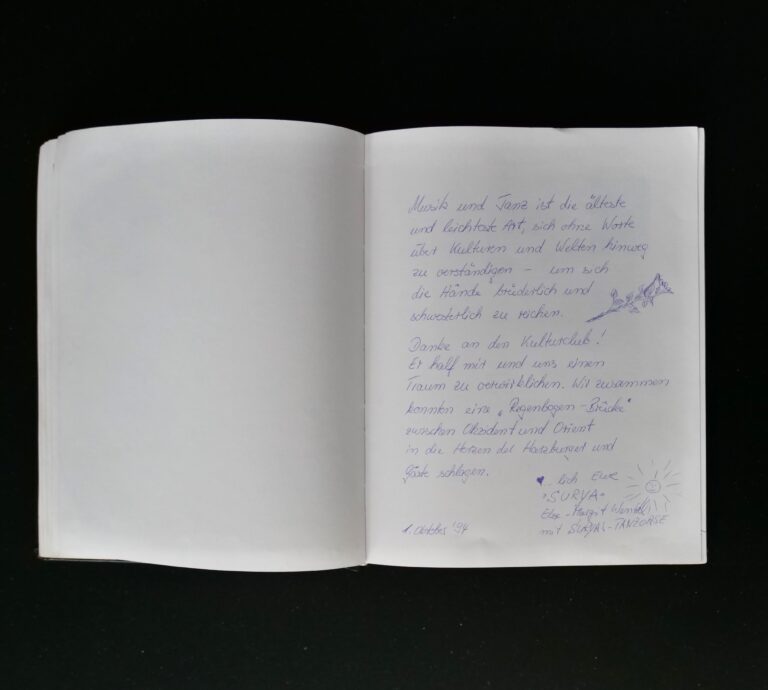 Musik und Tanz ist die älteste
und leichteste Art, sich ohne Worte
über Kulturen und Welten hinweg
zu verständigen – um sich
die Hände brüderlich und
schwesterlich zu reichen.
Danke an den Kulturclub!
Er half mir und uns einen
Traum zu verwirklichen. Wir zusammen
konnten eine „Regenbogen-Brücke"
zwischen Okzident und Orient
in die Herzen der Harzburger und
Gäste schlagen.
♥-lich Eure
"SURYA"
Else-Margot
mit SURYAS-TANZOASE
1. Oktober '94